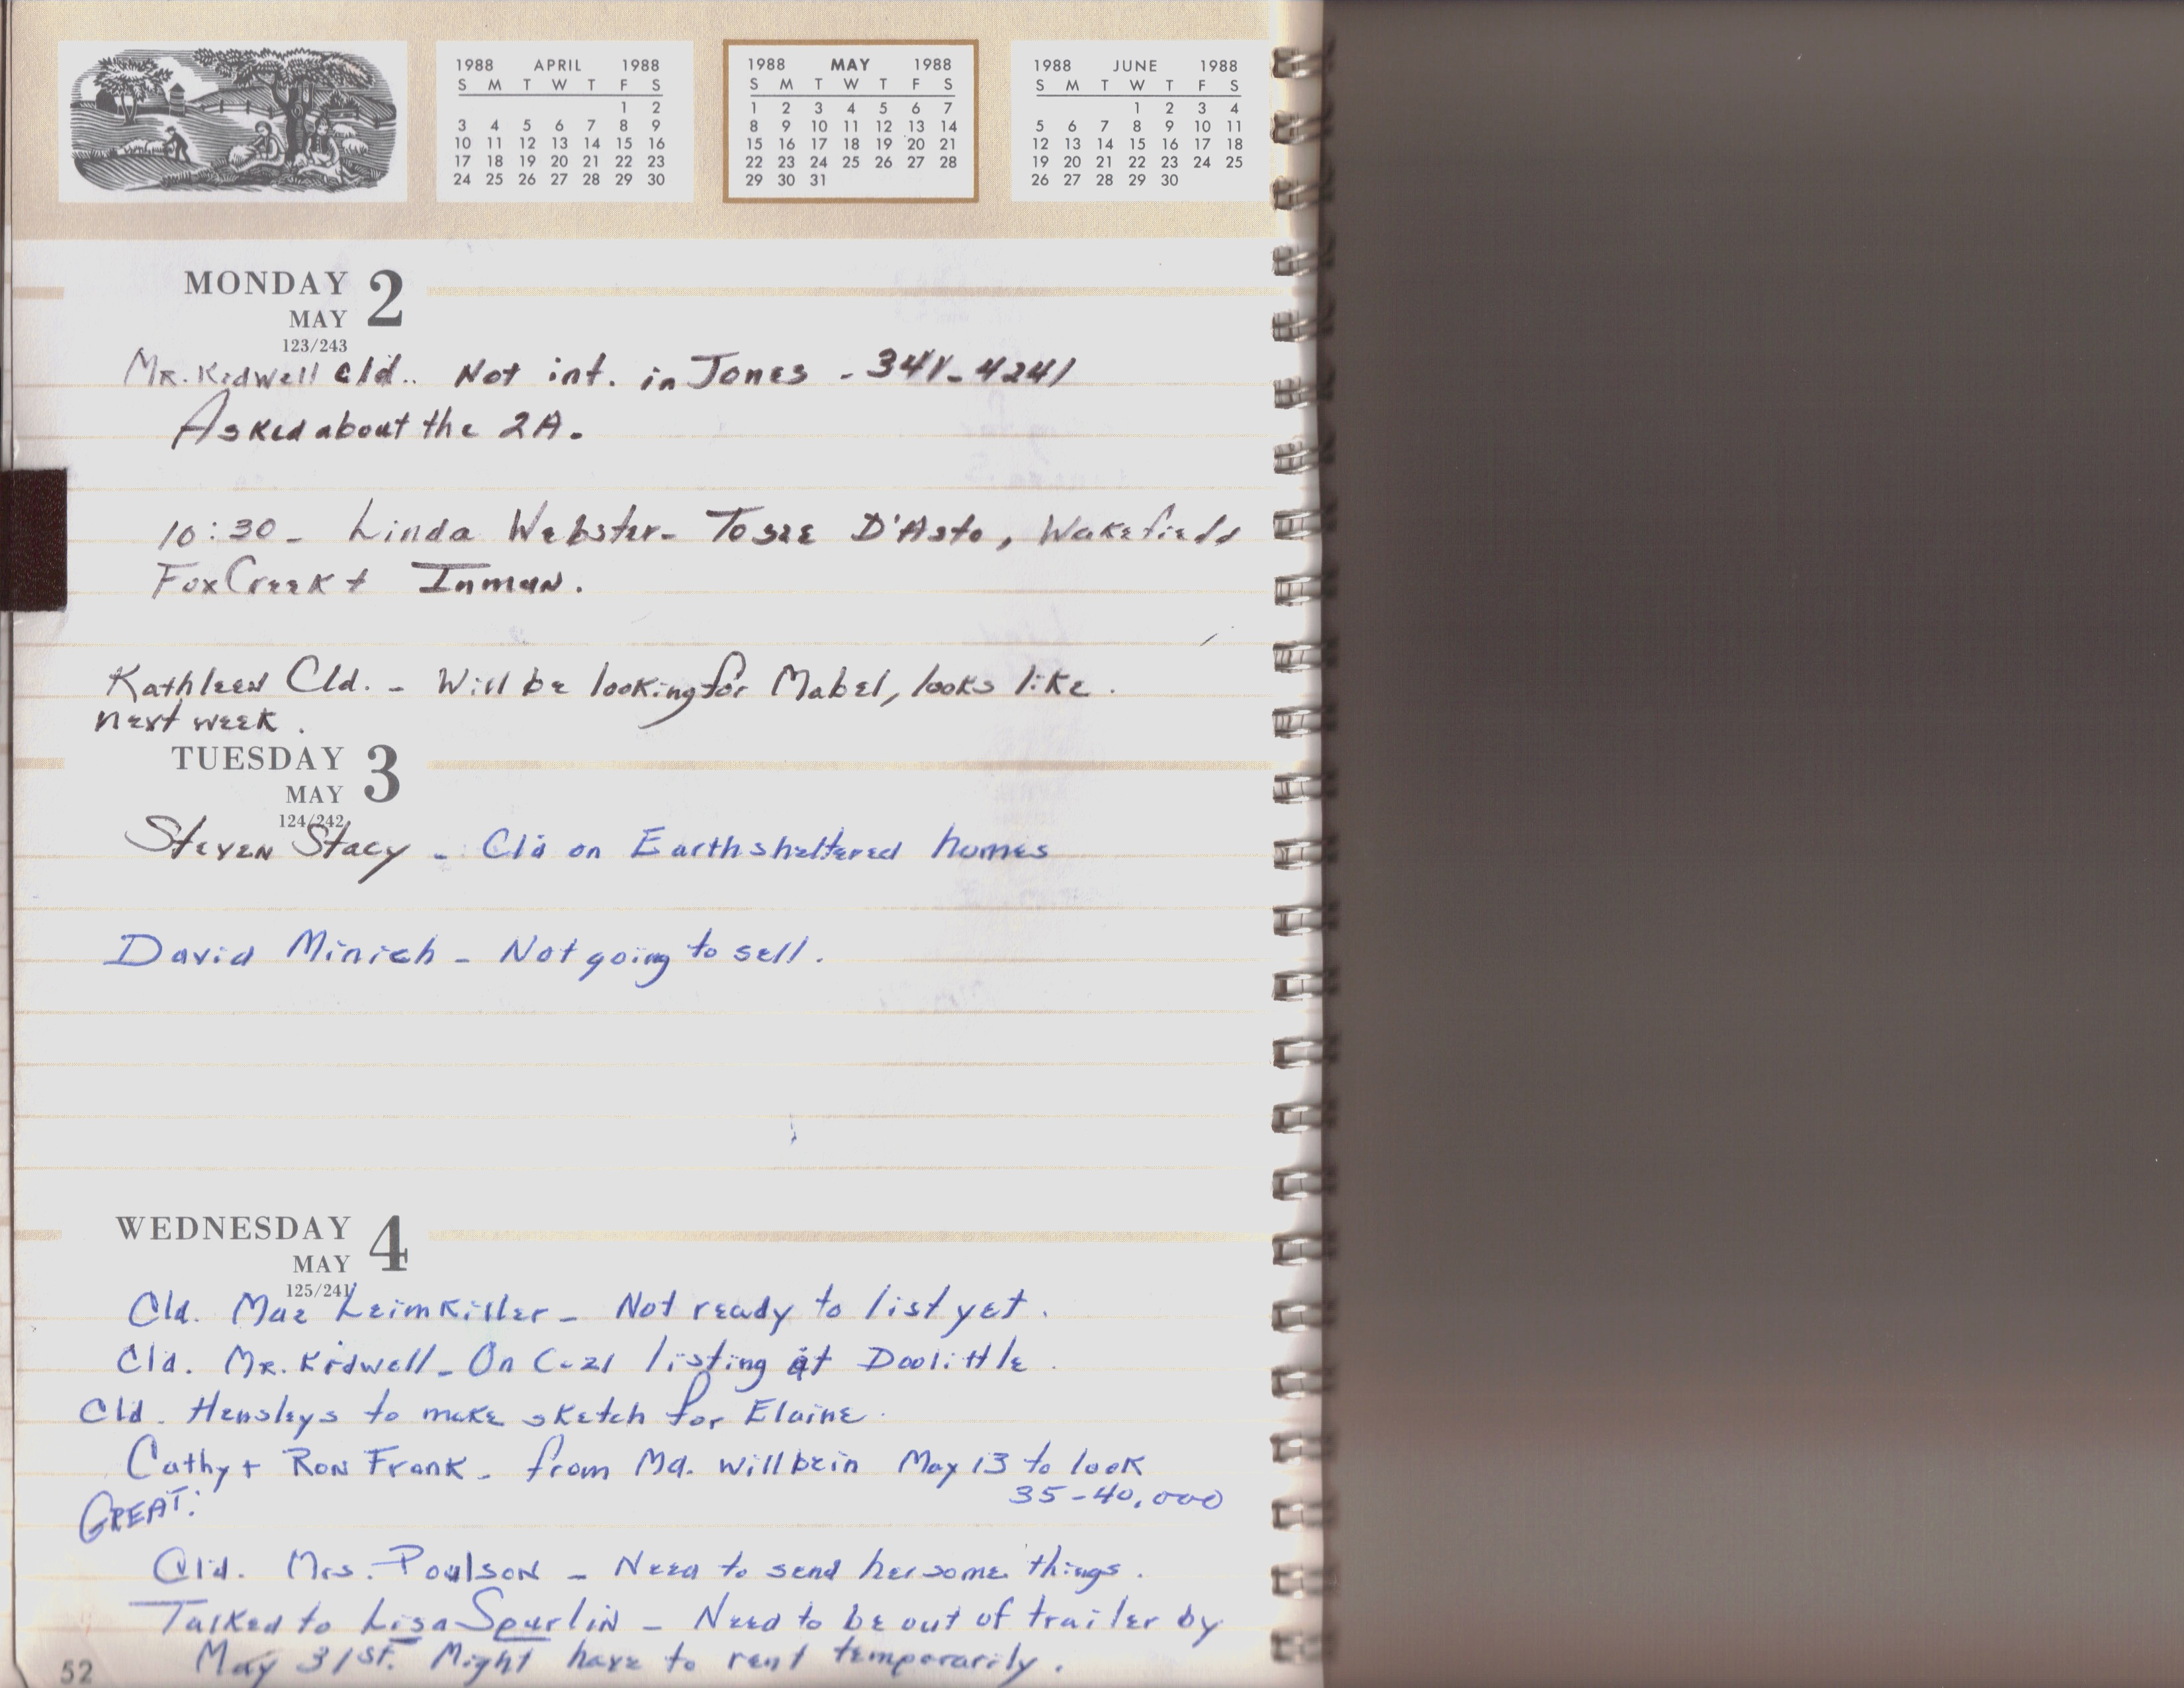 1988 APRIL 1988
S M T W T F S
1 2
3 4 5 6 7 8 9
10 11 12 13 14 15 16
17 18 19 20 21 22 23
24 25 26 27 28 29 30
1988 MAY 1988
S M T W T F S
1 2 3 4 5 6 7
8 9 10 11 12 13 14
15 16 17 18 19 20 21
22 23 24 25 26 27 28
29 30 31
1988 JUNE 1988
S M T W T F S
1 2 3 4
5 6 7 8 9 10 11
12 13 14 15 16 17 18
19 20 21 22 23 24 25
26 27 28 29 30
MONDAY 2
MAY
123/243
Mr. Kidwell Cld.. Not int. in Jones - 341-4241
Asked about the 2A.
10:30 - Linda Webster - To see D'Asto, Wakefield
Fox Creek + Inman.
Kathleen Cld. - Will be looking for Mabel, looks like.
next week.
TUESDAY 3
MAY
124/242
Steven Stacy - Cld on Earthsheltered homes
David Minich - Not going to sell.
WEDNESDAY 4
MAY
125/241
Cld. Mae Leimkiller - Not ready to list yet.
Cld. Mr. Kidwell - On C-21 listing at Doolittle.
Cld. Hensleys to make sketch for Elaine.
Cathy + Ron Frank - from Md. will be in May 13 to look
35-40,000
GREAT!
Cld. Mrs. Poulson - Need to send her some things.
Talked to Lisa Spurlin - Need to be out of trailer by
May 31st. Might have to rent temporarily.
52